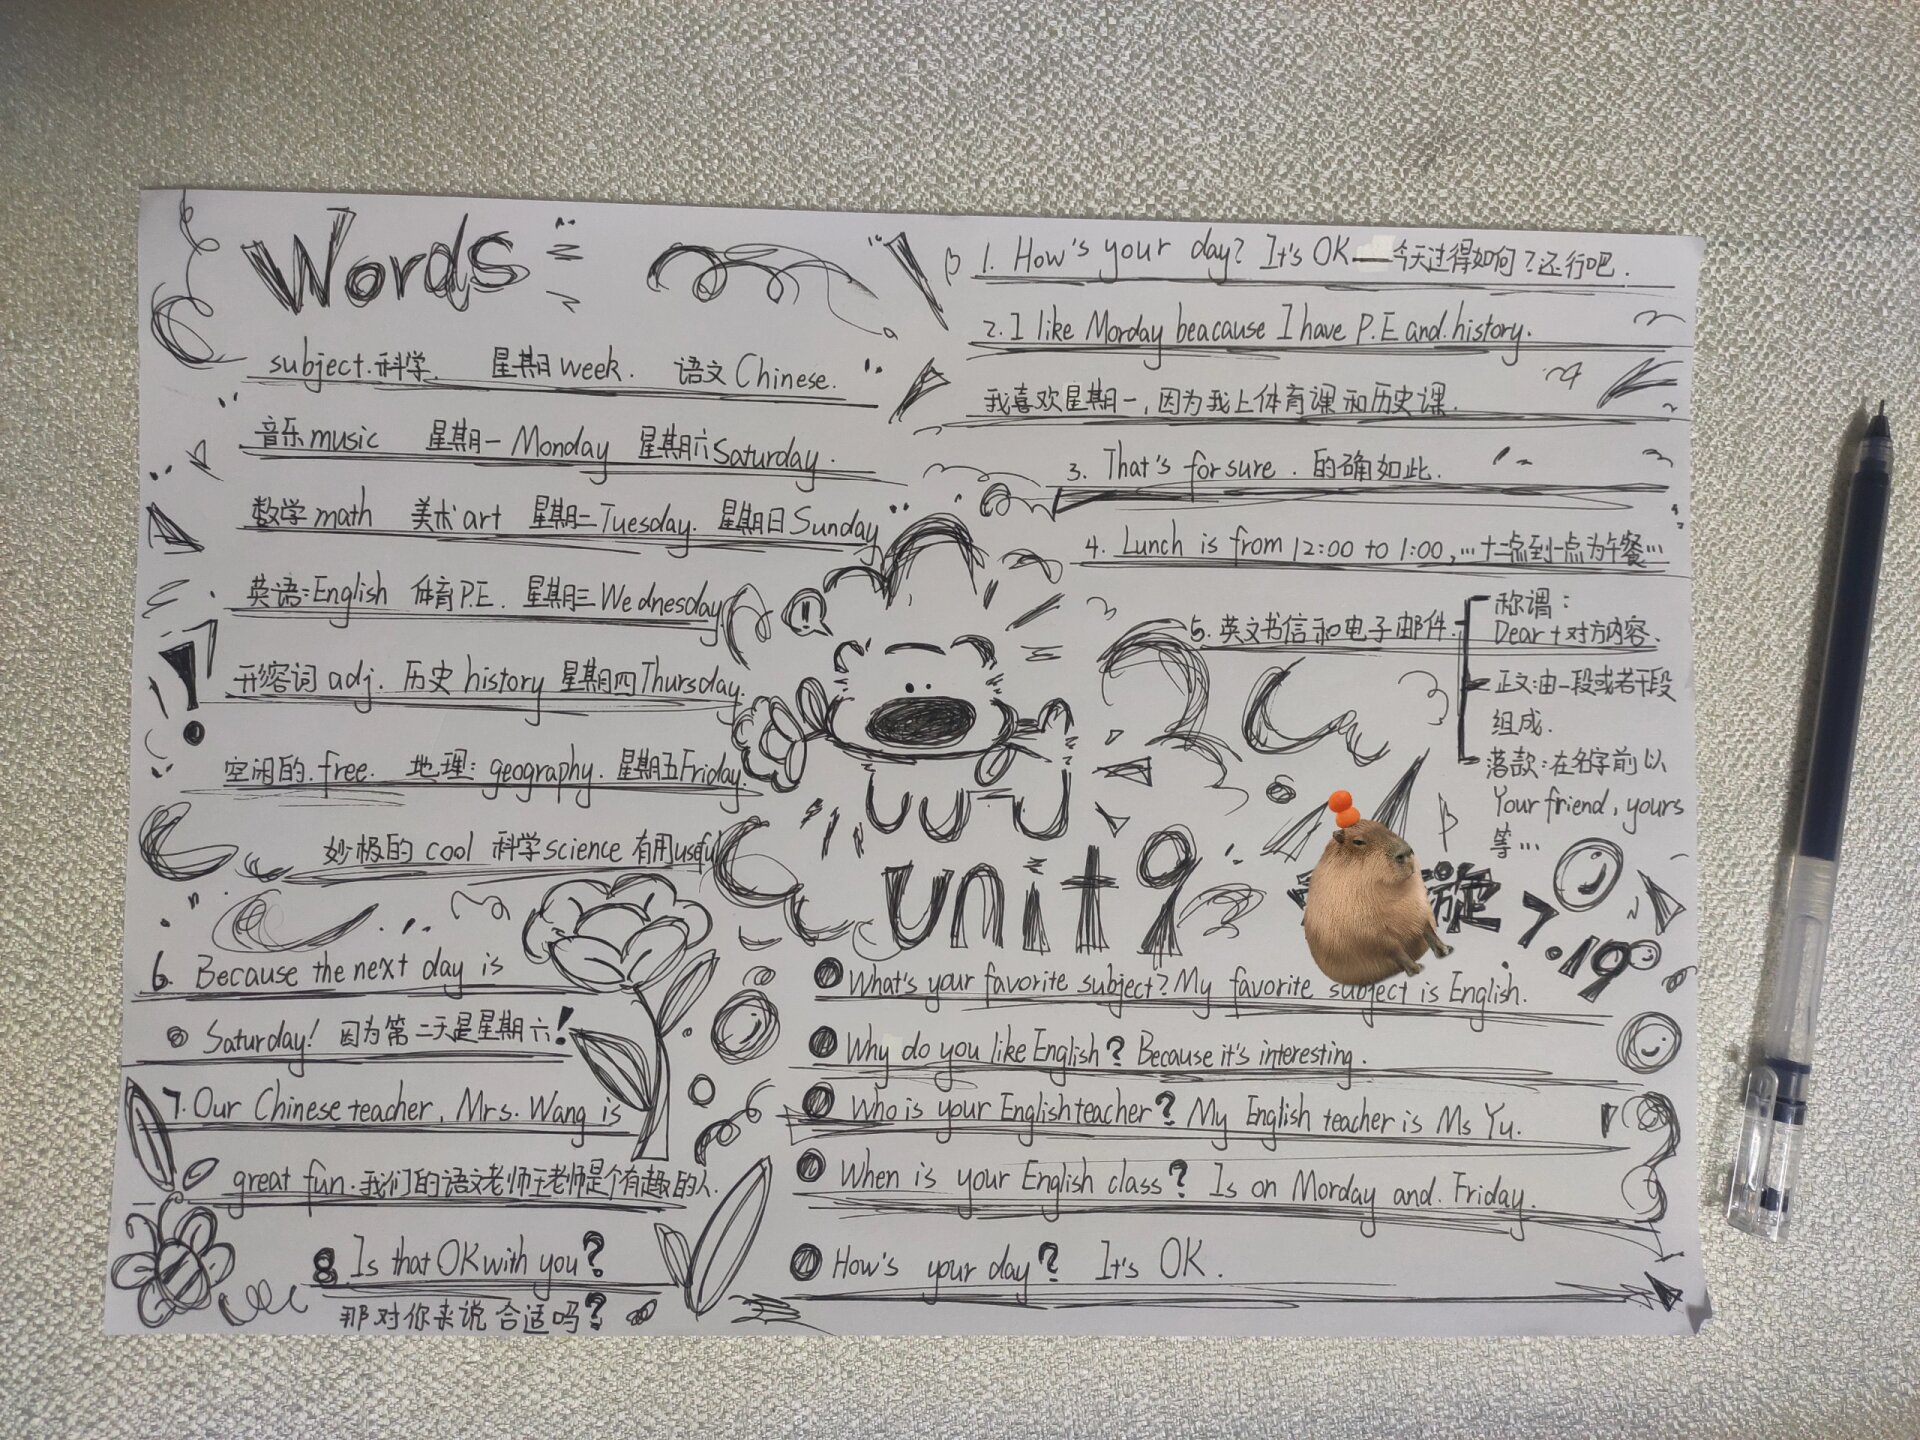 Words
subject.科学. 星期日week. 语文Chinese.
音乐music 星期一 Monday 星期六Saturday.
数学math 美术art 星期二Tuesday. 星期日Sunday
英语:English 体育P.E. 星期三Wednesday
形容词 adj. 历史 history 星期四Thursday.
空闲的.free. 地理: geography. 星期五Friday.
妙极的 cool 科学science 有用useful
1. How's your day? It's OK—今天过得如何?还行吧.
2. I like Morday beacause I have P.E and.history.
我喜欢星期一,因为我上体育课和历史课.
3. That's for sure. 的确如此.
4. Lunch is from 12:00 to 1:00,…十二点到一点为午餐…
5. 英文书信和电子邮件.
称谓:
Dear+对方内容.
正文:由一段或若干段
组成.
落款:在名字前以
Your friend, yours
等…
!!
unit 9
旋 7.19
6. Because the next day is
Saturday! 因为第二天是星期六!
7. Our Chinese teacher, Mrs. Wang is
great fun.我们的语文老师王老师是个有趣的人.
8 Is that OK with you?
那对你来说合适吗?
What's your favorite subject? My favorite subject is English.
Why do you like English? Because it's interesting.
Who is your English teacher? My English teacher is Ms Yu.
When is your English class? Is on Morday and. Friday.
How's your day? It's OK.